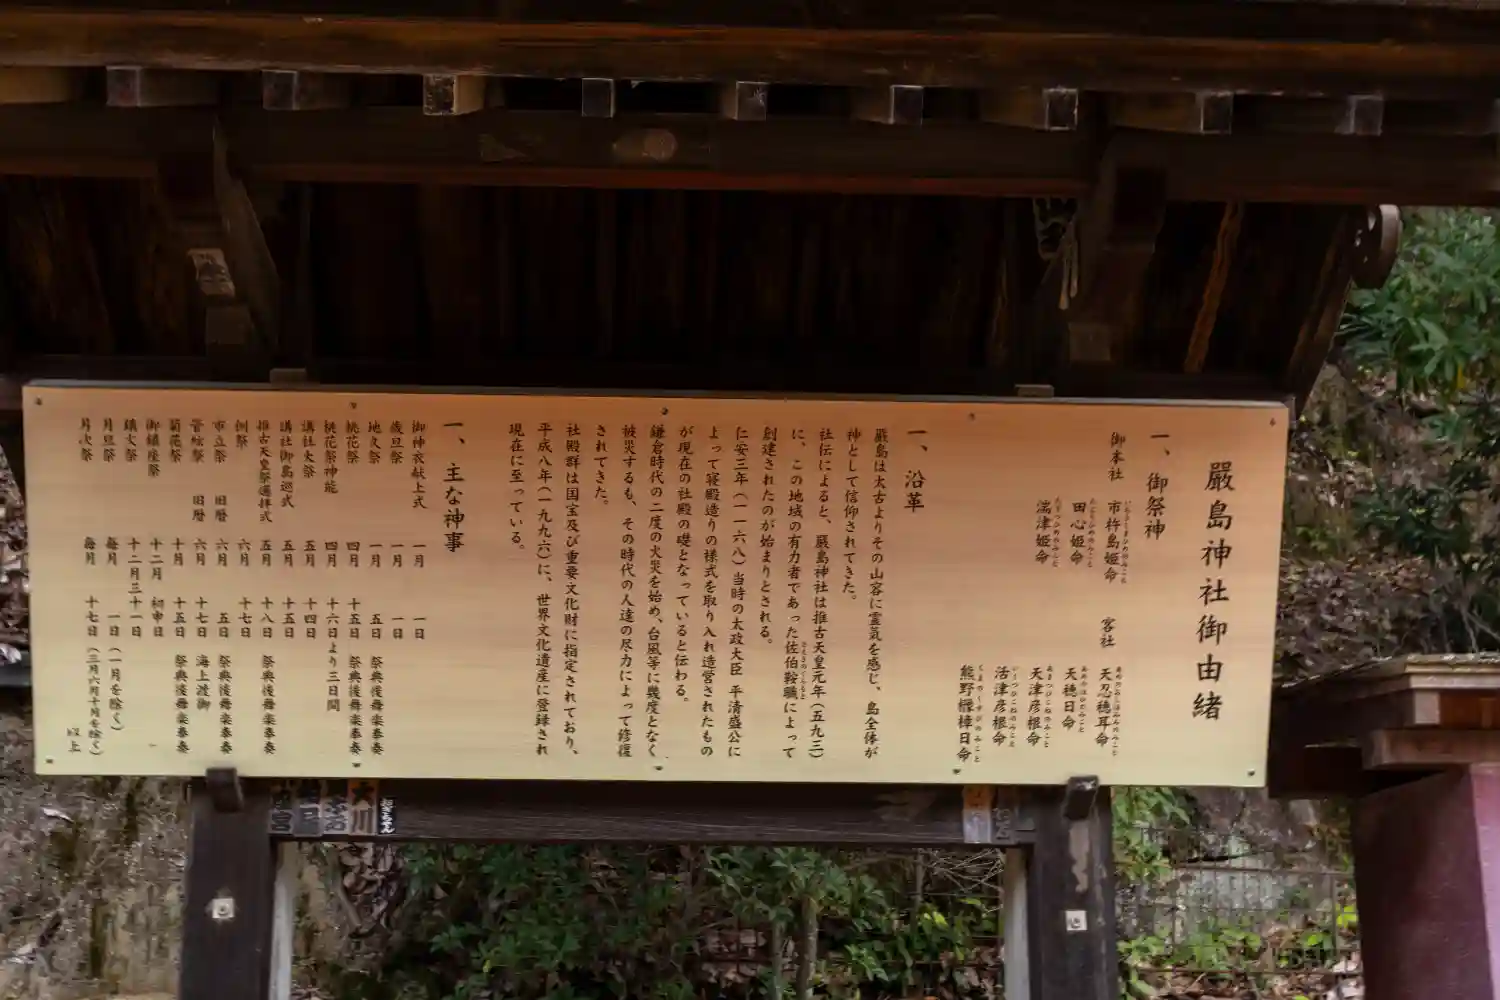 嚴島神社御由緒
一、御祭神
御本社 市杵島姫命 客社 天忍穂耳命
いちきしまひめのみこと
田心姫命 天穂日命
たごりひめのみこと
湍津姫命 天津彦根命
たぎつひめのみこと
活津彦根命
いくつひこねのみこと
熊野櫲樟日命
くまのくすびのみこと
一、沿革
嚴島は太古よりその山容に霊気を感じ、島全体が
神として信仰されてきた。
社伝によると、嚴島神社は推古天皇元年(五九三)
に、この地域の有力者であった佐伯鞍職によって
さえきのくらもと
創建されたのが始まりとされる。
仁安三年(一一六八)当時の太政大臣 平清盛公に
よって寝殿造りの様式を取り入れ造営されたもの
が現在の社殿の礎となっていると伝わる。
鎌倉時代の二度の火災を始め、台風等に幾度となく
被災するも、その時代の人達の尽力によって修復
されてきた。
社殿群は国宝及び重要文化財に指定されており、
平成八年(一九九六)に、世界文化遺産に登録され
現在に至っている。
一、主な神事
御神衣献上式 一月 一日
歳旦祭 一月 一日
地久祭 一月 五日 祭典後舞楽奉奏
桃花祭 四月 十五日 祭典後舞楽奉奏
桃花祭神能 四月 十六日より三日間
講社大祭 五月 十四日
講社御島巡式 五月 十五日
推古天皇祭遥拝式 五月 十八日 祭典後舞楽奉奏
例祭 六月 十七日
市立祭 旧暦 六月 五日 祭典後舞楽奉奏
管絃祭 旧暦 六月 十七日 海上渡御
菊花祭 十月 十五日 祭典後舞楽奉奏
御鎮座祭 十二月 初申日
鎮火祭 十二月三十一日
月旦祭 毎月 一日(一月を除く)
月次祭 毎月 十七日(三月六月十月を除く)
以上
大川
おぎちゃん